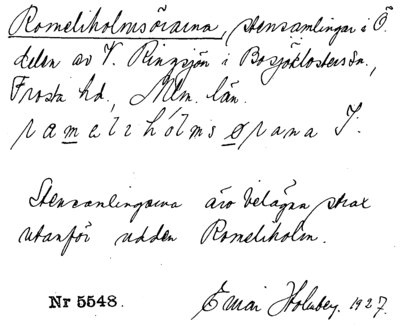 Romeliholmsörarna, stensamlingar i Ö.
delen av V. Ringsjön i Bosjöklosters sn.,
Frosta hd., Mlm. län.
ramelihólmsørana I.
Stensamlingarna äro belägna strax
utanför udden Romeliholm.
Nr 5548. Einar Holmberg. 1927.